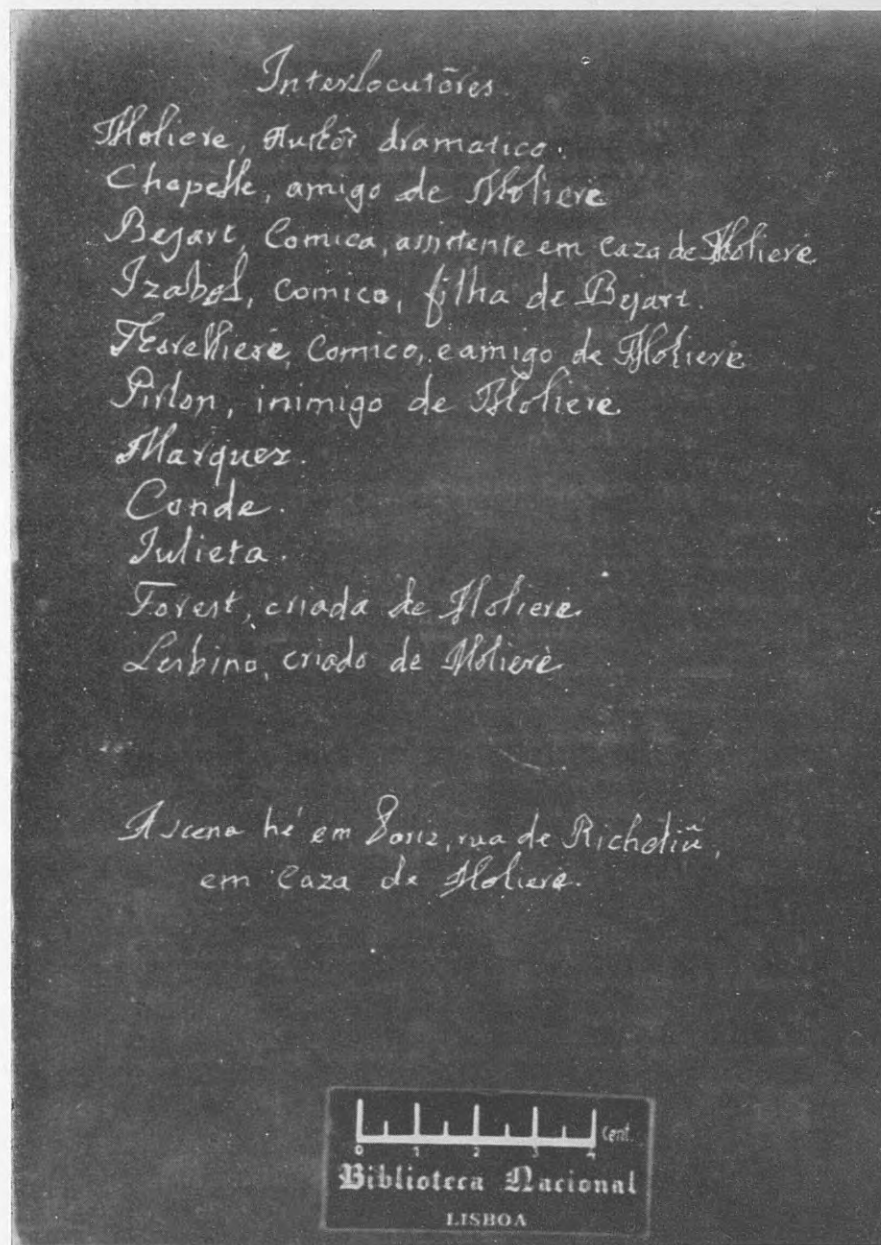 Interlocutôres.
Moliere, Autôr dramatico.
Chapelle, amigo de Moliere
Bejart, Comica, assistente em Caza de Moliere
Izabel, Comica, filha de Bejart.
Comico, e amigo de Moliere
Pirlon, inimigo de Moliere
Marquez.
Conde.
Julieta.
Forest, criada de Moliere
Lesbino, criado de Moliere
A scena hé em Pariz, rua de Richeliú,
em Caza de Moliere.
0 1 2 3 4 Cent.
Biblioteca Nacional
LISBOA